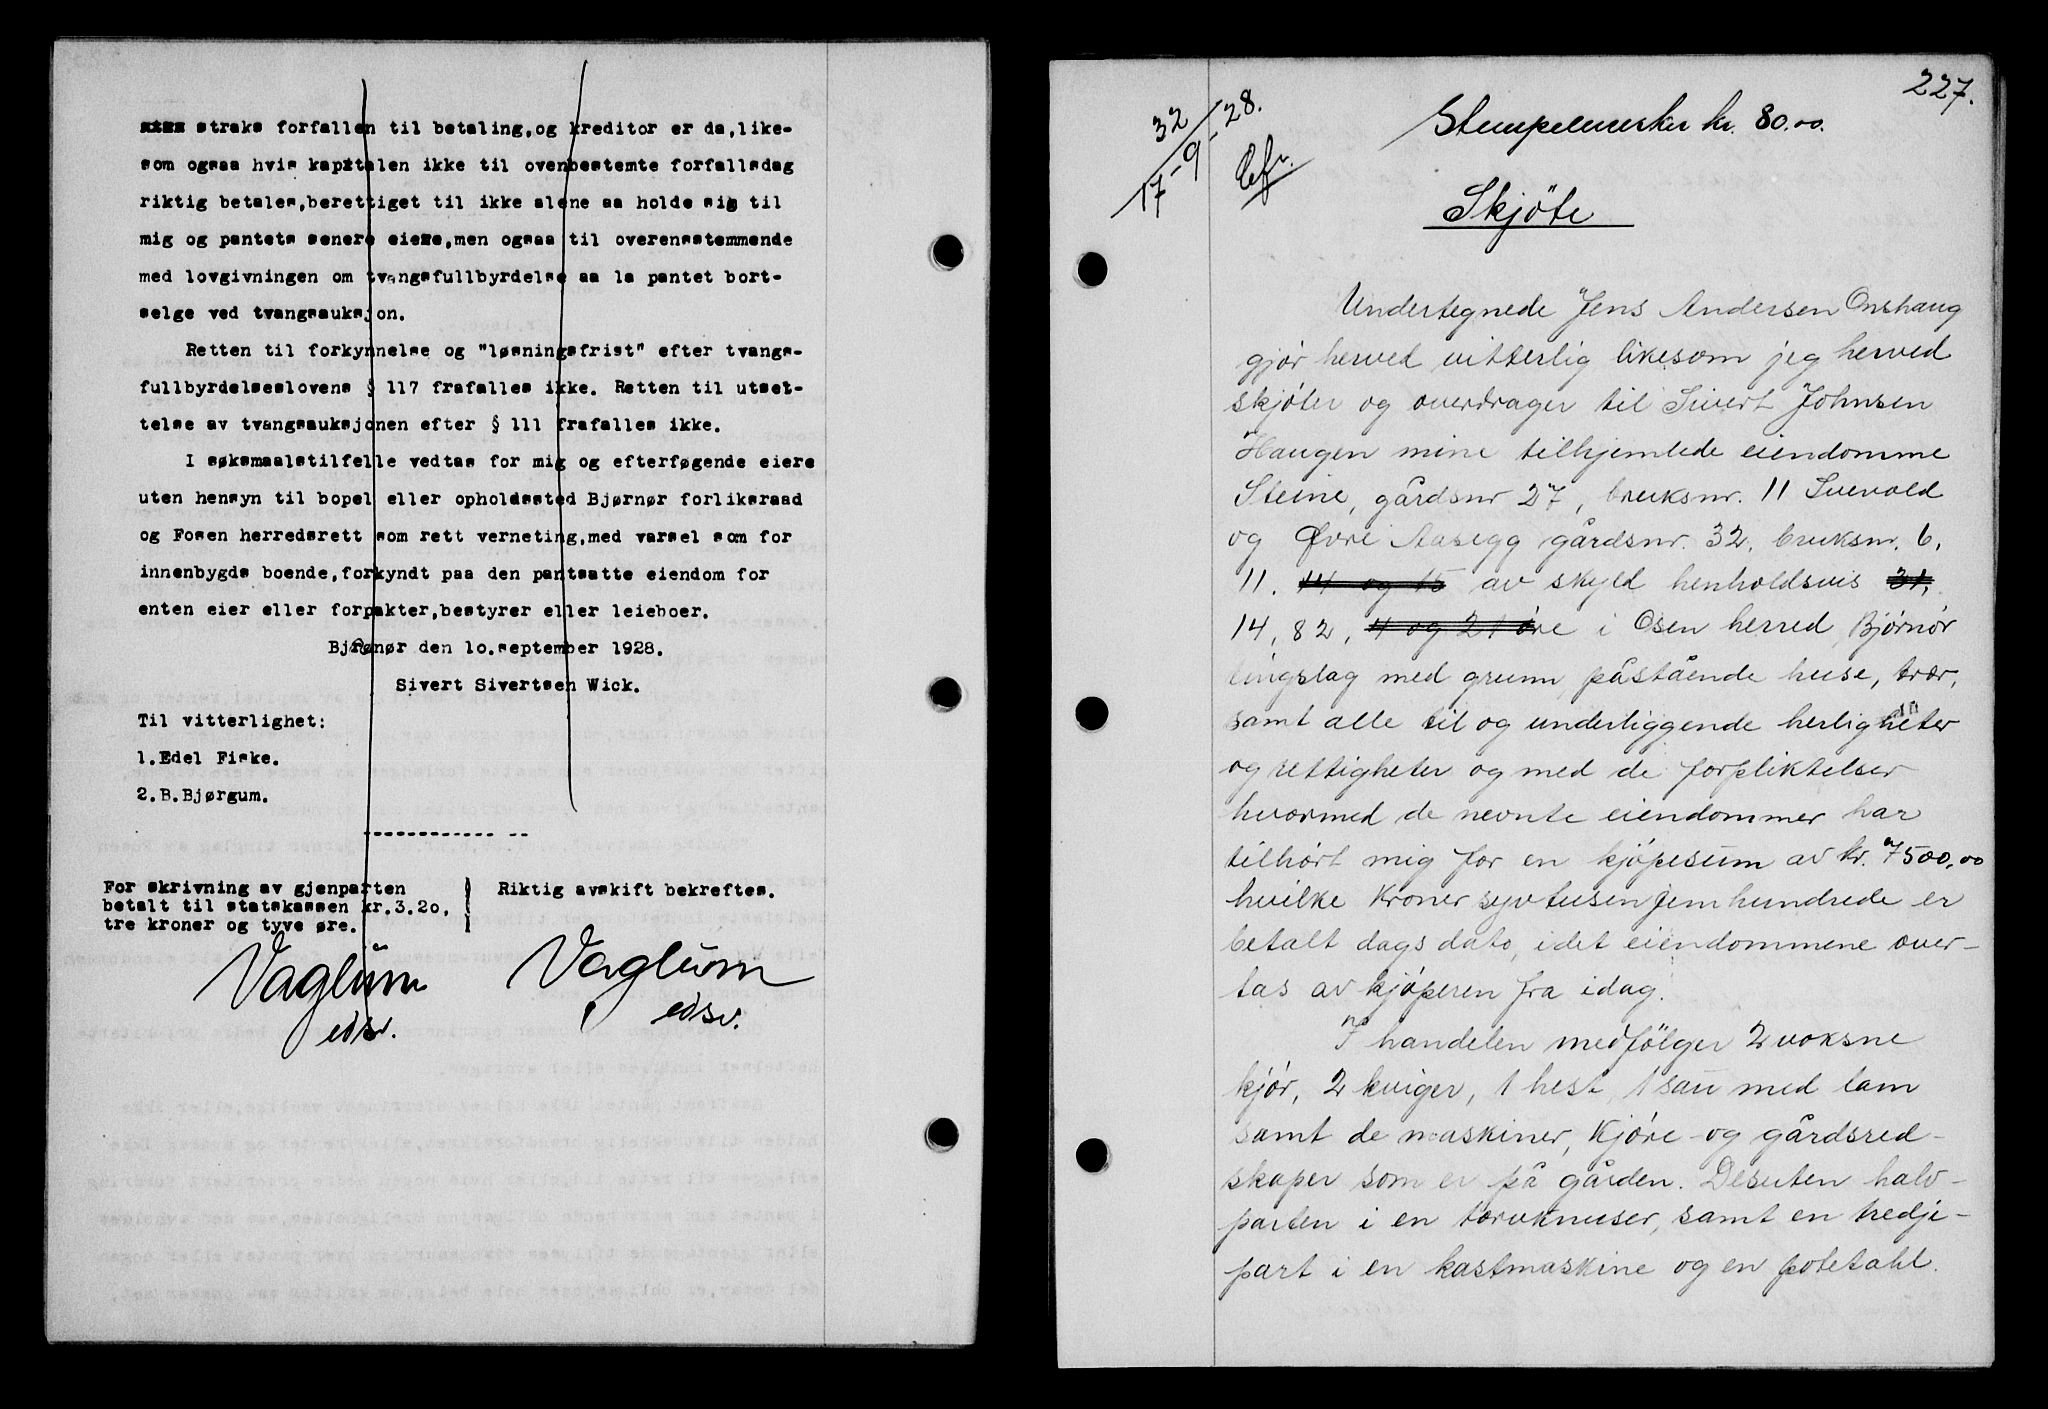 straks forfallen til betaling,og kreditor er da,like-
som ogsaa hvis kapitalen ikke til ovenbestemte forfallsdag
riktig betales,berettiget til ikke alene aa holde sig til
mig og pantets senere eiere,men ogsaa til overensstemmende
med lovgivningen om tvangsfullbyrdelse aa la pantet bort-
selge ved tvangsauksjon.
Retten til forkynnelse og "løsningsfrist" efter tvangs-
fullbyrdelseslovens § 117 frafalles ikke. Retten til utset-
telse av tvangsauksjonen efter § 111 frafalles ikke.
I søksmaalstilfelle vedtas for mig og efterføgende eiere
uten hensyn til bopel eller opholdssted Bjørnør forliksraad
og Fosen herredsrett som rett verneting,med varsel som for
innenbygds boende,forkyndt paa den pantsatte eiendom for
enten eier eller forpakter,bestyrer eller leieboer.
Bjørnør den 10.september 1928.
Sivert Sivertsen Wick.
Til vitterlighet:
1.Edel Fiske.
2.B.Bjørgum.
For skrivning av gjenparten
betalt til statskassen kr.3.20,
tre kroner og tyve øre.
Riktig avskift bekreftes.
Vaglum
edsv.
Vaglum
edsv.
227.
32
17-9-28.
Stempelmerker kr. 80.00.
Skjöte
Undertegnede Jens Andersen Onshaug
gjör herved vitterlig likesom jeg herved
skjöter og overdrager til Sivert Johnsen
Haugen mine tilhjemlede eiendomme
Steine, gårdsnr 27, bruksnr. 11 Svevold
og Øvre Aasegg gårdsnr. 32, bruksnr. 6,
11. 14 og 15 av skyld henholdsvis 31,
14, 82, 4 og 21 øre i Osen herred, Bjørnør
tingslag med grunn, påstående huse, trær,
samt alle til og underliggende herligheter
og rettigheter og med de forpliktelser
hvormed de nevnte eiendommer har
tilhört mig for en kjöpesum av kr. 7500,00
hvilke Kroner syvtusenfemhundrede er
betalt dags dato, idet eiendommene over-
tas av kjöperen fra idag.
I handelen medfölger 2 voksne
kjör, 2 kviger, 1 hest, 1 sau med lam
samt de maskiner, Kjöre- og gårdsred-
skaper som er på gården. Desuten halv-
parten i en torvknuser, samt en tredje-
part i en kastmaskine og en potetahl.